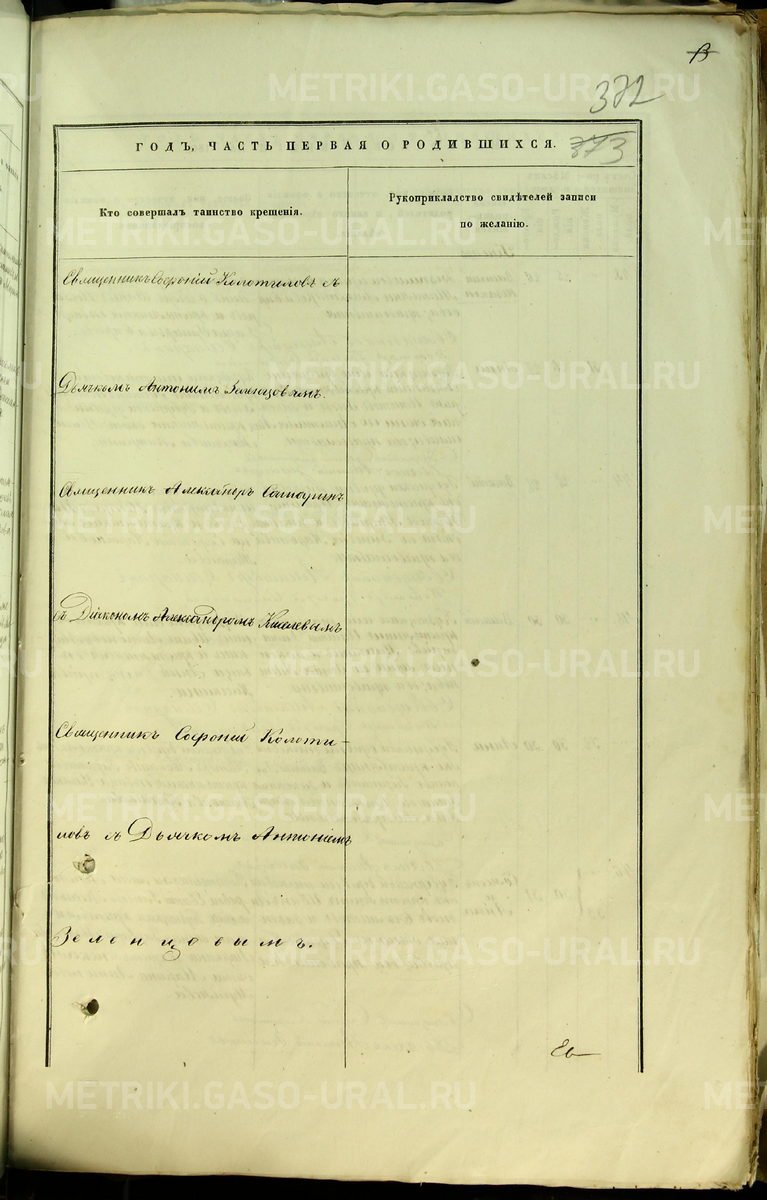 372
373
ГОДЪ, ЧАСТЬ ПЕРВАЯ О РОДИВШИХСЯ.
Кто совершалъ таинство крещенія.
Рукоприкладство свидѣтелей записи
по желанію.
Священникъ Софроній Колотиловъ съ
Дьячкомъ Антонимъ Зеленцовымъ.
Священникъ Александръ Сапоуринъ
съ Діакономъ Александромъ Киселевымъ
Священникъ Софроній Колоти-
ловъ съ Дьячкомъ Антоніемъ
Зеленцовымъ.
METRIKI.GASO-URAL.RU